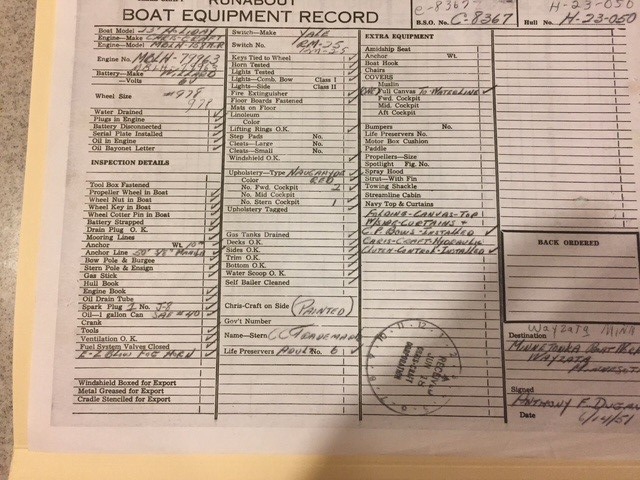 RUNABOUT
BOAT EQUIPMENT RECORD
e-8367
B.S.O. No. C-8367
H-23-050
Hull No. H-23-050
Boat Model
Engine—Make CHRIS-CRAFT
Engine—Model
Engine No.
Battery—Make WILLARD
—Volts 6V
Wheel Size #978
978
Water Drained
Plugs in Engine
Battery Disconnected
Serial Plate Installed
Oil in Engine
Oil Bayonet Letter
INSPECTION DETAILS
Tool Box Fastened
Propeller Wheel in Boat
Wheel Nut in Boat
Wheel Key in Boat
Wheel Cotter Pin in Boat
Battery Strapped
Drain Plug O. K.
Mooring Lines
Anchor Wt. 10#
Anchor Line 50' 3/8"
Bow Pole & Burgee
Stern Pole & Ensign
Gas Stick
Hull Book
Engine Book
Oil Drain Tube
Spark Plug No. J-8
Oil—1 gallon Can SAE #40
Crank
Tools
Ventilation O. K.
Fuel System Valves Closed
Windshield Boxed for Export
Metal Greased for Export
Cradle Stenciled for Export
Switch—Make YALE
Switch No. RM-25
Keys Tied to Wheel
Horn Tested
Lights Tested
Lights—Comb. Bow Class I
Lights—Side Class II
Fire Extinguisher
Floor Boards Fastened
Mats on Floor
Linoleum
Color
Lifting Rings O.K.
Step Pads No.
Cleats—Large No.
Cleats—Small No.
Windshield O.K.
Upholstery—Type NAUGAHYDE
Color RED
No. Fwd. Cockpit 2
No. Mid Cockpit
No. Stern Cockpit 1
Upholstery Tagged
Gas Tanks Drained
Decks O.K.
Sides O.K.
Trim O.K.
Bottom O.K.
Water Scoop O. K.
Self Bailer Cleaned
Chris-Craft on Side (PAINTED)
Gov't Number
Name—Stern CC TRADEMARK
Life Preservers ADULT No. 6
EXTRA EQUIPMENT
Amidship Seat
Anchor Wt.
Boat Hook
Chairs
COVERS
Muslin
Full Canvas To WATERLINE
Fwd. Cockpit
Mid. Cockpit
Aft Cockpit
Bumpers No.
Life Preservers No.
Motor Box Cushion
Paddle
Propellers—Size
Spotlight Fig. No.
Spray Hood
Strut—With Fin
Towing Shackle
Streamline Cabin
Navy Top & Curtains
FOLDING-CANVAS-TOP
SIDE-CURTAINS &
C.P. BOWS-INSTALLED
CHRIS-CRAFT-HYDRAULIC
CLUTCH-CONTROL-INSTALLED
BACK ORDERED
Wayzata Minn
Destination
MINNETONKA BOAT
WAYZATA
MINNESOTA
Signed
ANTHONY F. DUGAN
Date 6/14/51